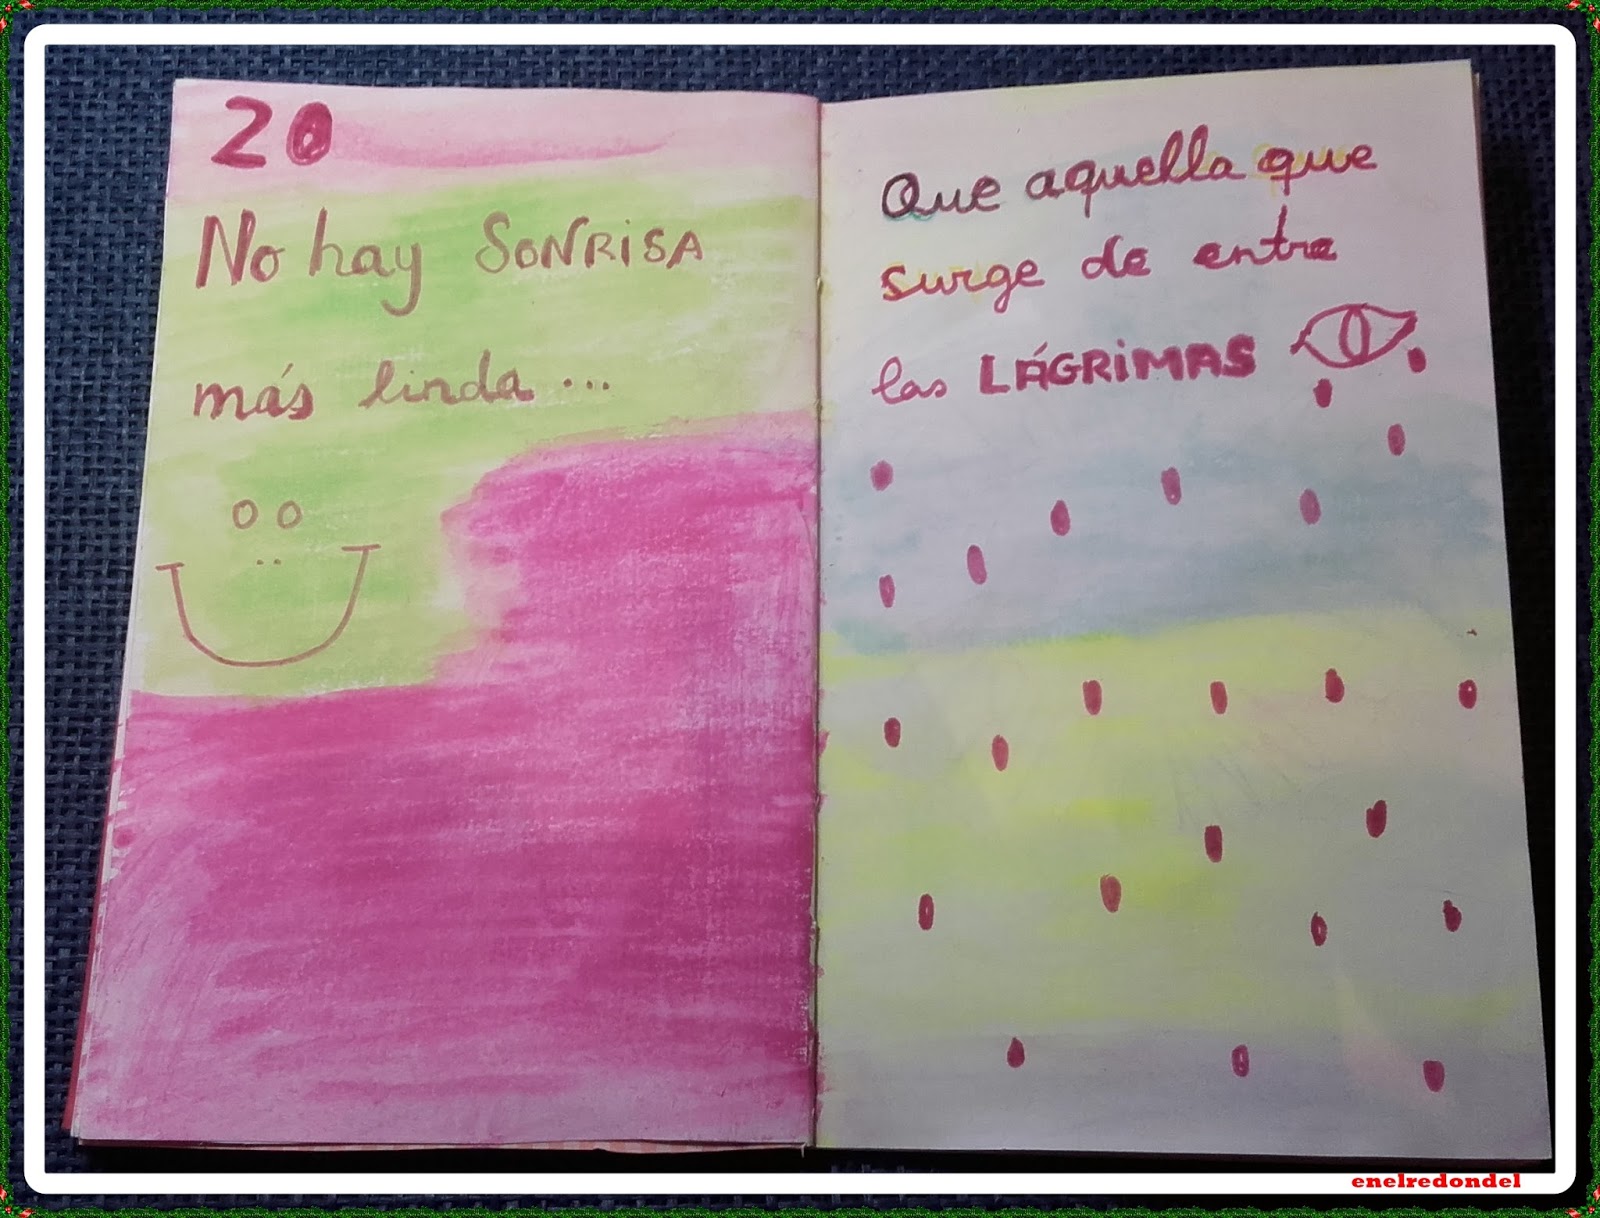 20
No hay SONRISA
más linda ...
Que aquella que
surge de entre
las LÁGRIMAS
enelredondel